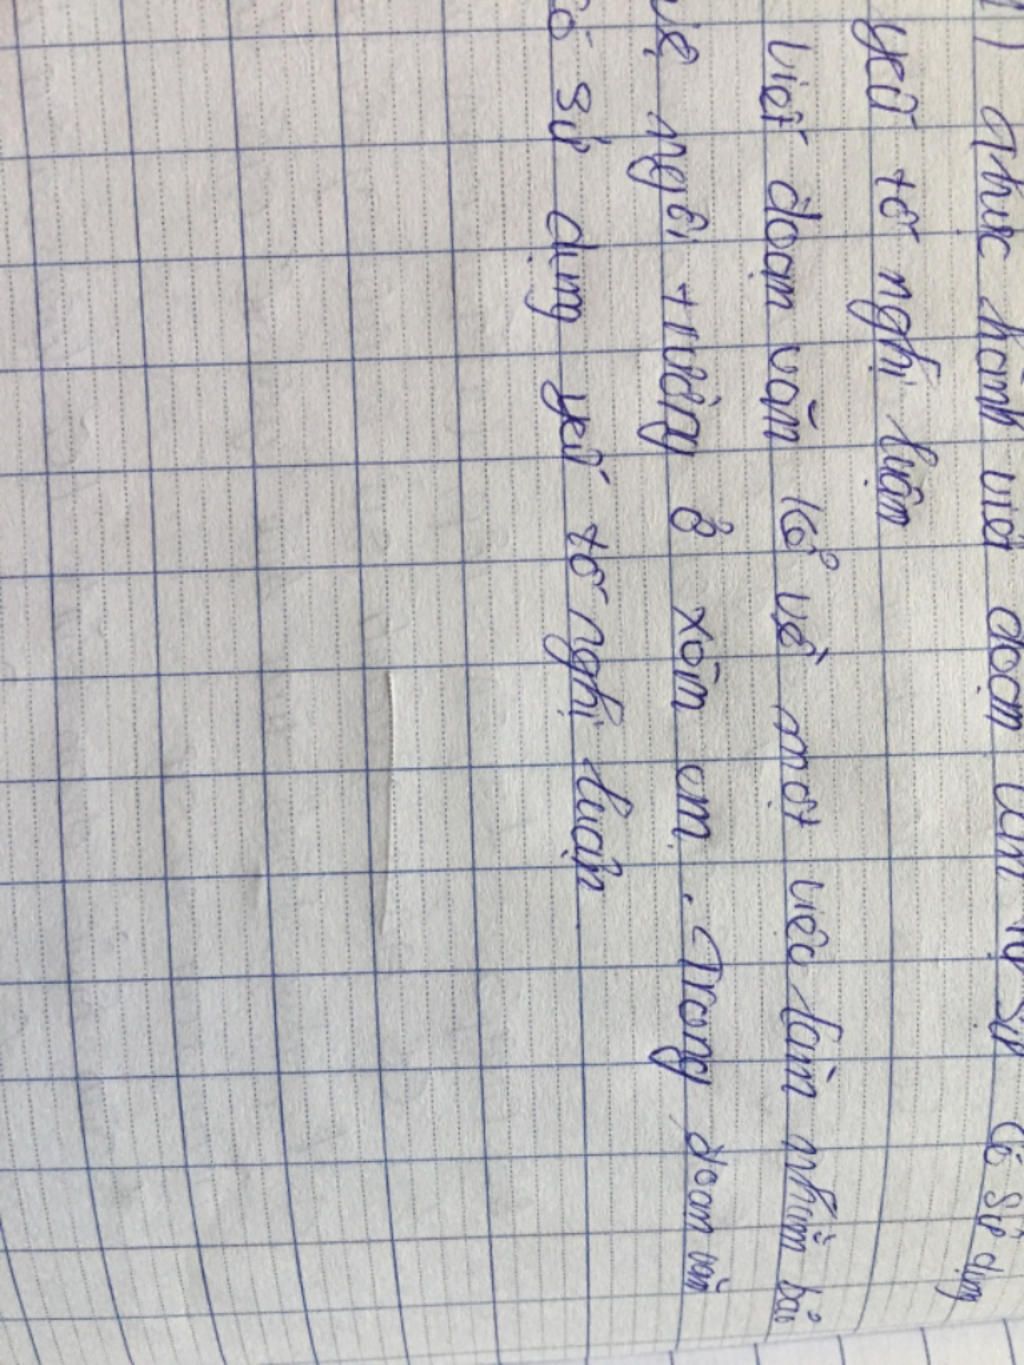 thực hành viết đoạn văn tự sự có sử dụng
yếu tố nghị luận
Viết đoạn văn kể về một việc làm nhằm bảo
vệ ngôi trường ở xóm em. Trong đoạn văn
có sử dụng yếu tố nghị luận